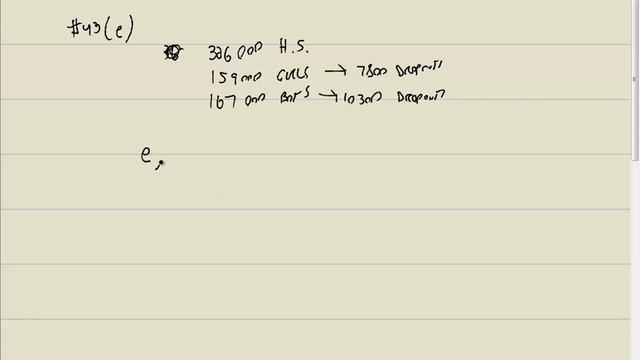 #43(e)
326 000 H.S.
159 000 GIRLS → 7800 DROPOUTS
167 000 BOYS → 10300 DROPOUTS
e,